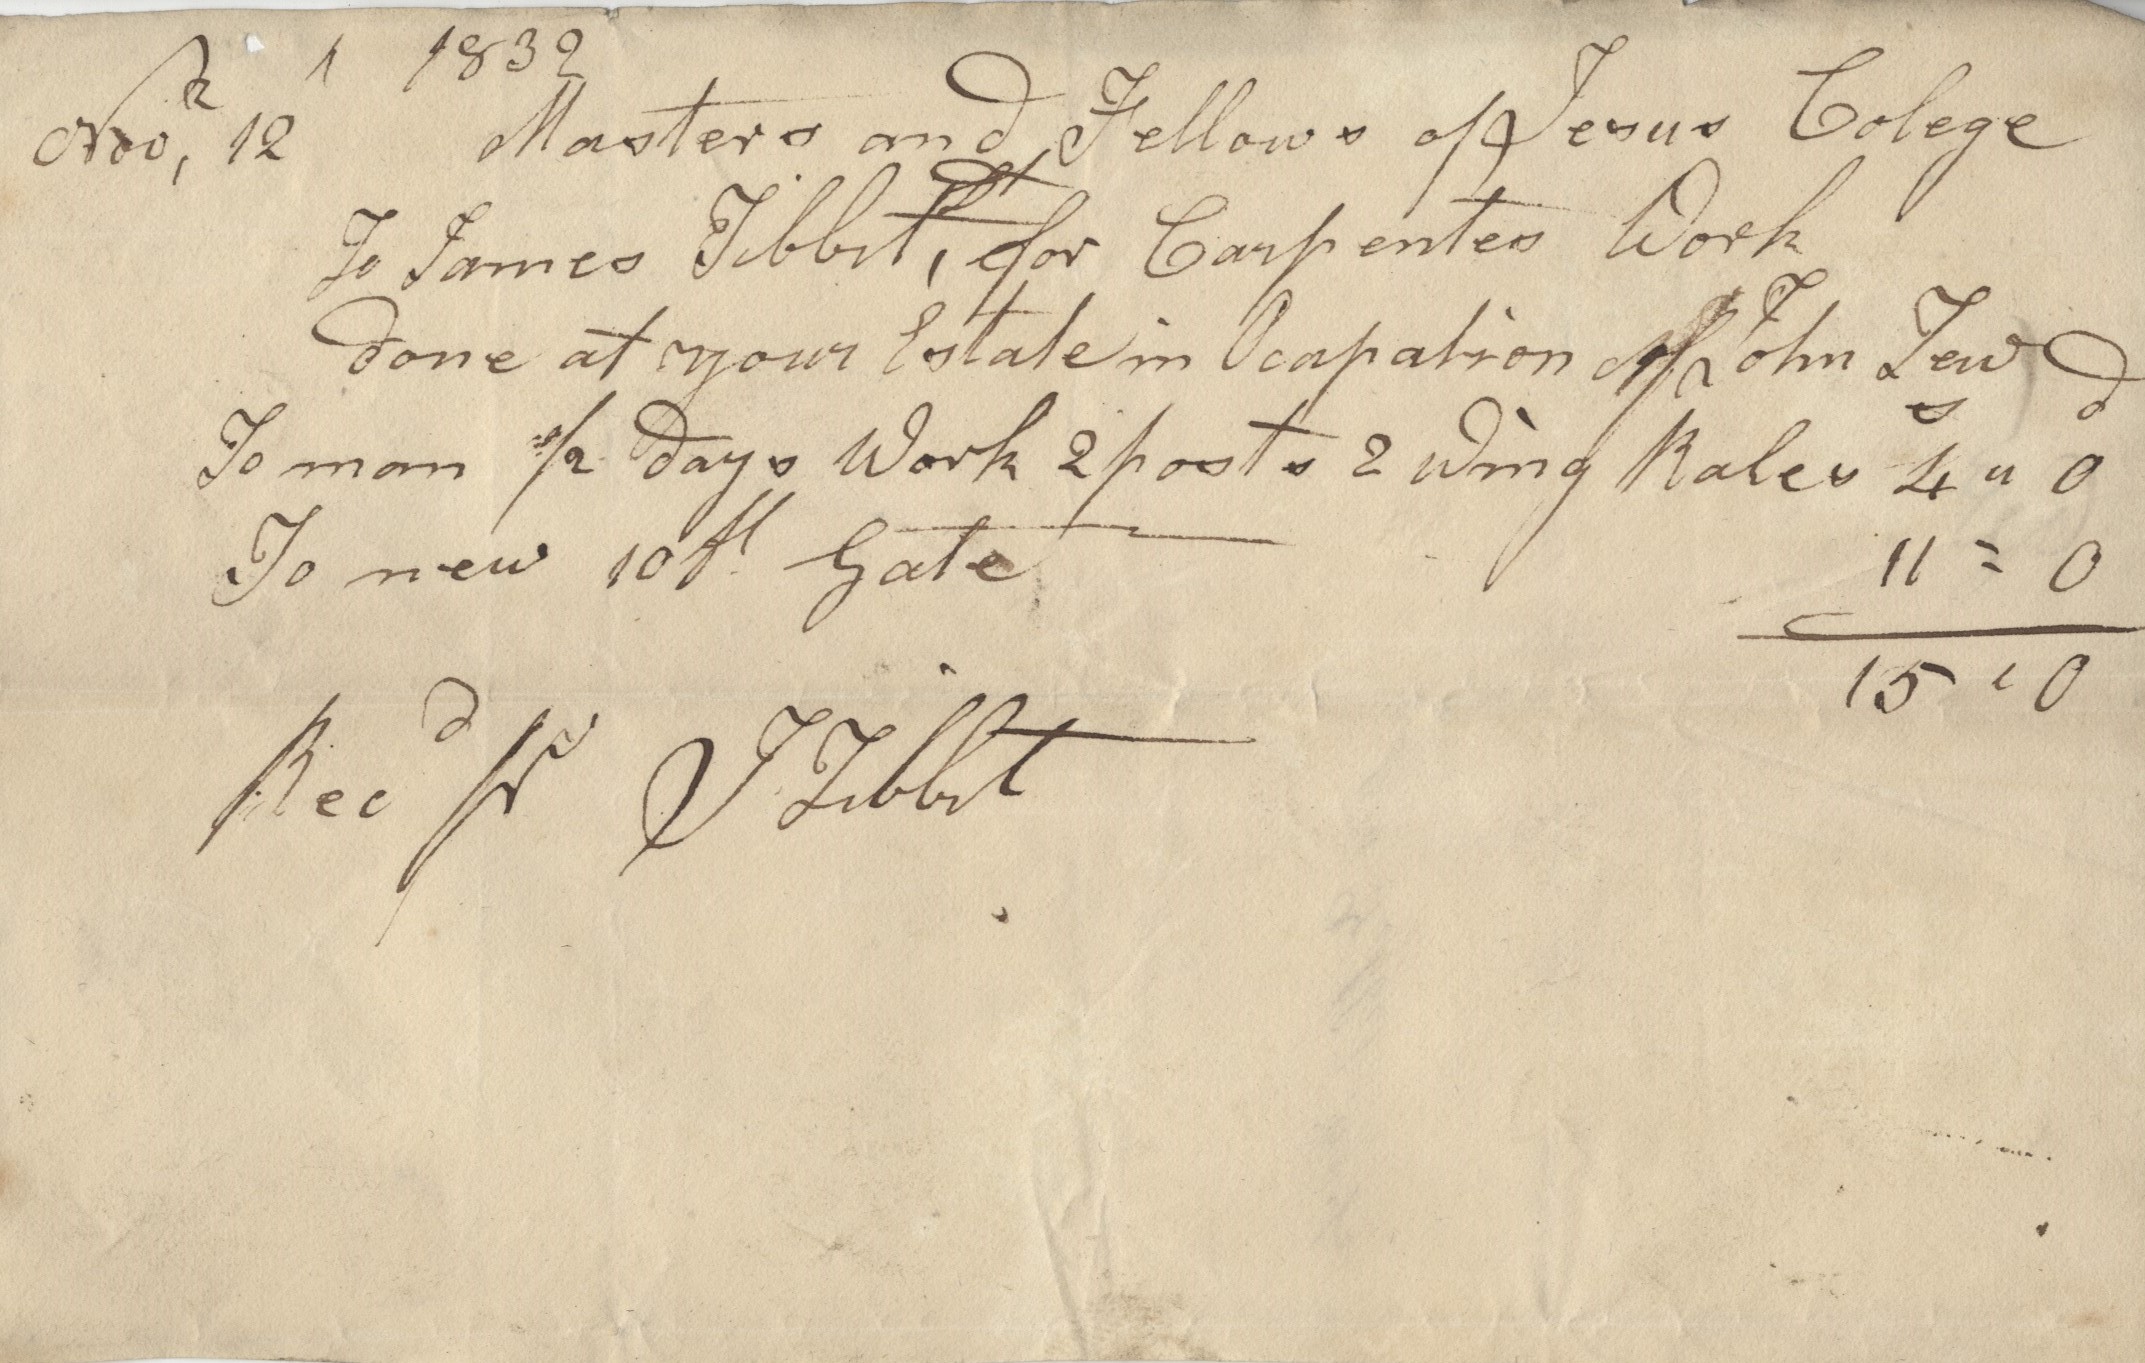 1 1832
Novr, 12 Masters and Fellows of Jesus Colege
To James Tibbit, for Carpentes Work
done at your Estate in Ocapation of John Tew
s d
To man 1/2 days Work 2 posts 2 Wing Rales 4 " 0
To new 10 ft. Gate 11 = 0
15 " 0
Recd J Tibbit